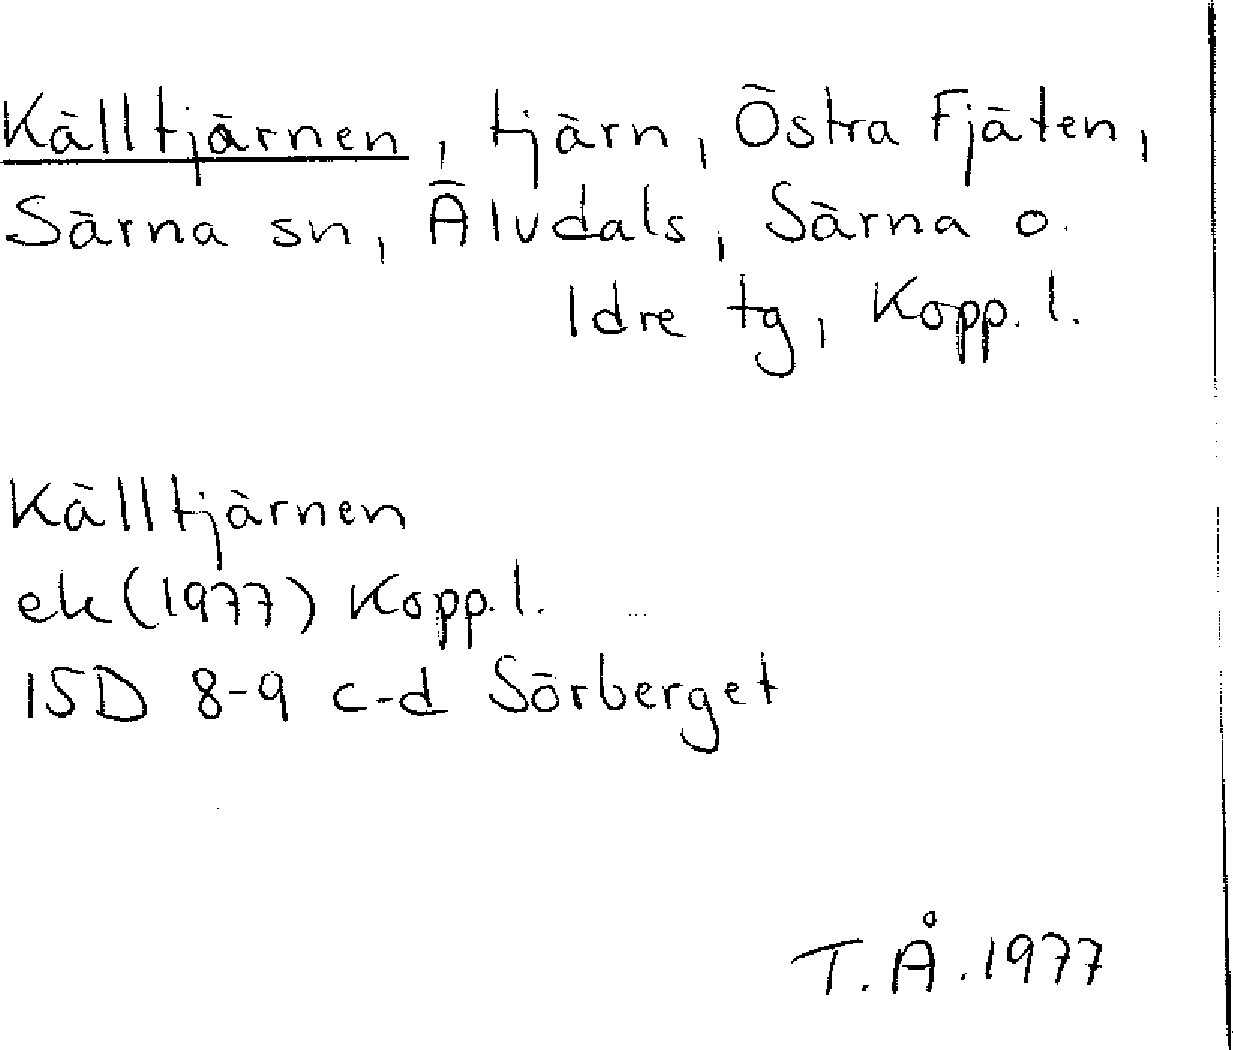 Källtjärnen, tjärn, Östra Fjäten,
Särna sn, Älvdals, Särna o.
Idre tg, Kopp. l.
Källtjärnen
ek (1977) Kopp. l.
15D 8-9 c-d Sörberget
T. Å. 1977